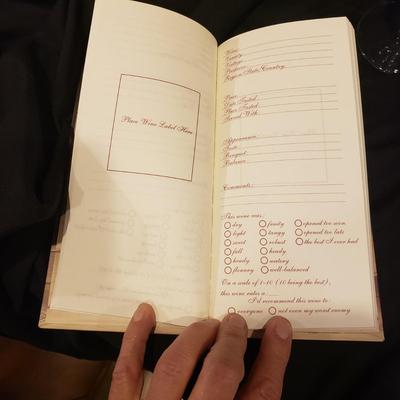 Place Wine Label Here
Wine:
Country:
Vintage:
Producer:
Region/State/Country:
Price:
Date Tasted:
Place Tasted:
Served With:
Appearance:
Taste:
Bouquet:
Balance:
Comments:
This wine was:
dry fruity opened too soon
light tangy opened too late
sweet robust the best I ever had
full heady
heady watery
flowery well-balanced
On a scale of 1-10 (10 being the best),
this wine rates a:
I'd recommend this wine to:
everyone not even my worst enemy